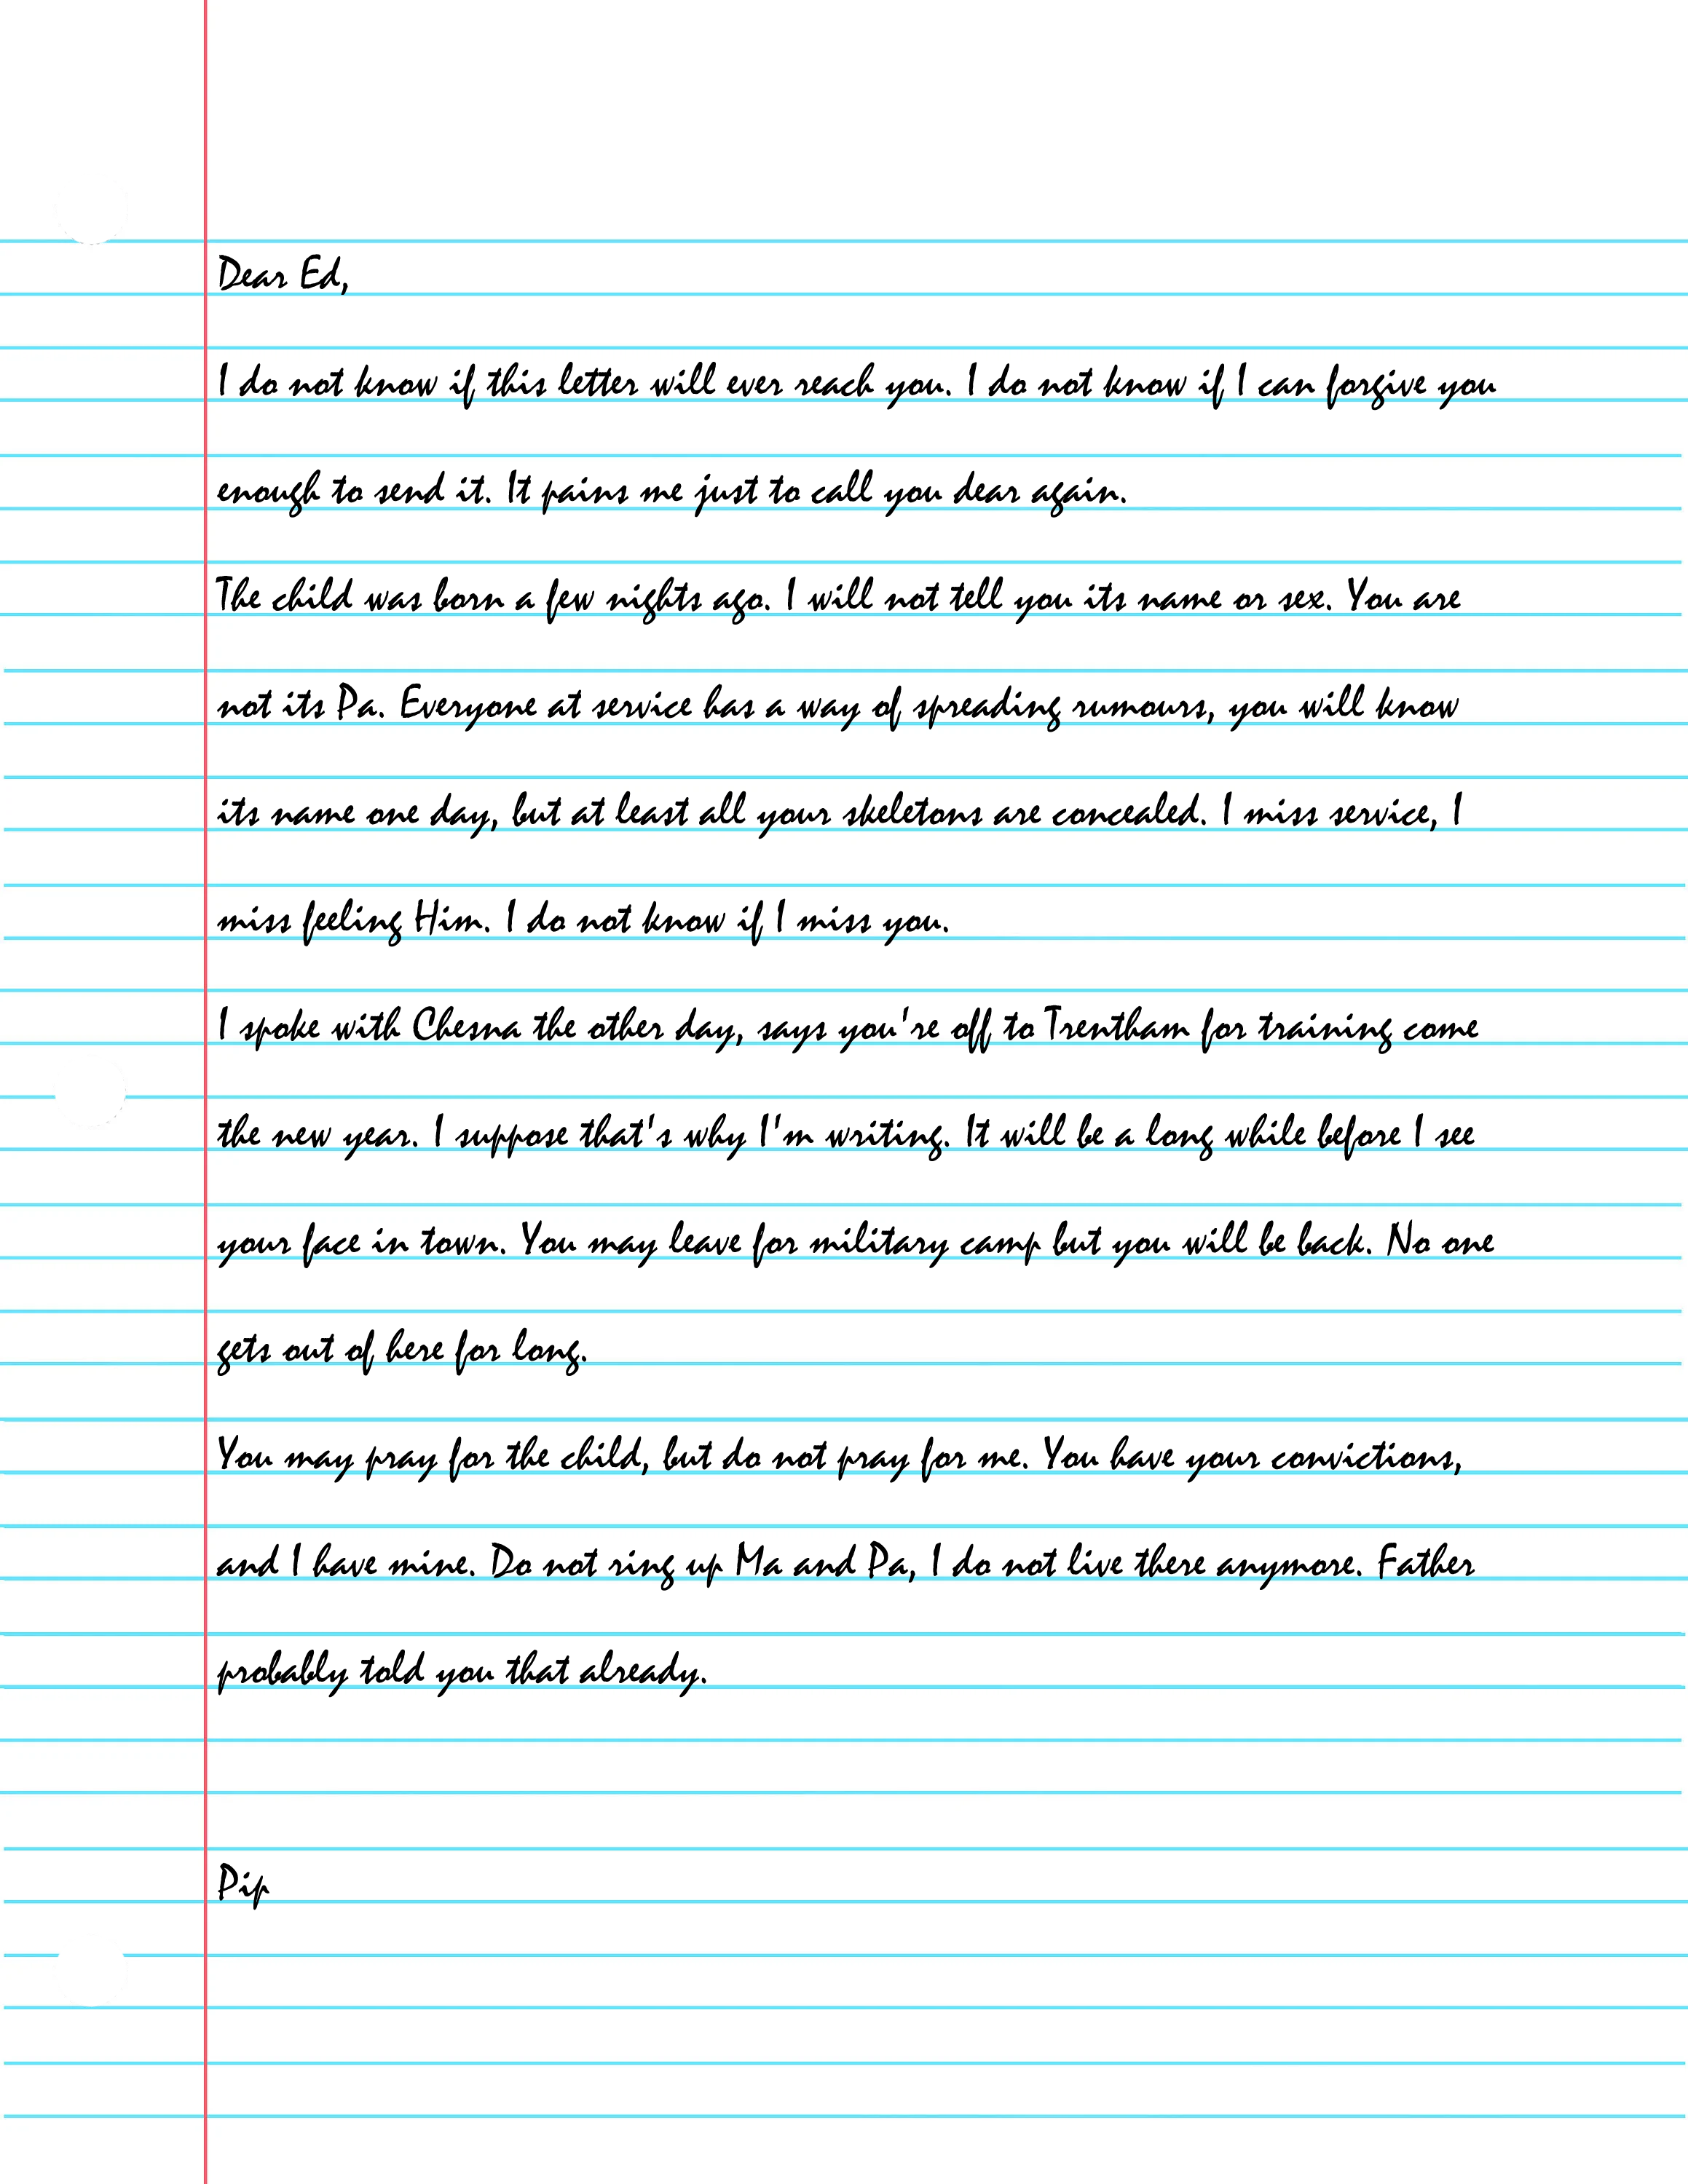 Dear Ed,
I do not know if this letter will ever reach you. I do not know if I can forgive you
enough to send it. It pains me just to call you dear again.
The child was born a few nights ago. I will not tell you its name or sex. You are
not its Pa. Everyone at service has a way of spreading rumours, you will know
its name one day, but at least all your skeletons are concealed. I miss service, I
miss feeling Him. I do not know if I miss you.
I spoke with Chesna the other day, says you're off to Trentham for training come
the new year. I suppose that's why I'm writing. It will be a long while before I see
your face in town. You may leave for military camp but you will be back. No one
gets out of here for long.
You may pray for the child, but do not pray for me. You have your convictions,
and I have mine. Do not ring up Ma and Pa, I do not live there anymore. Father
probably told you that already.
Pip